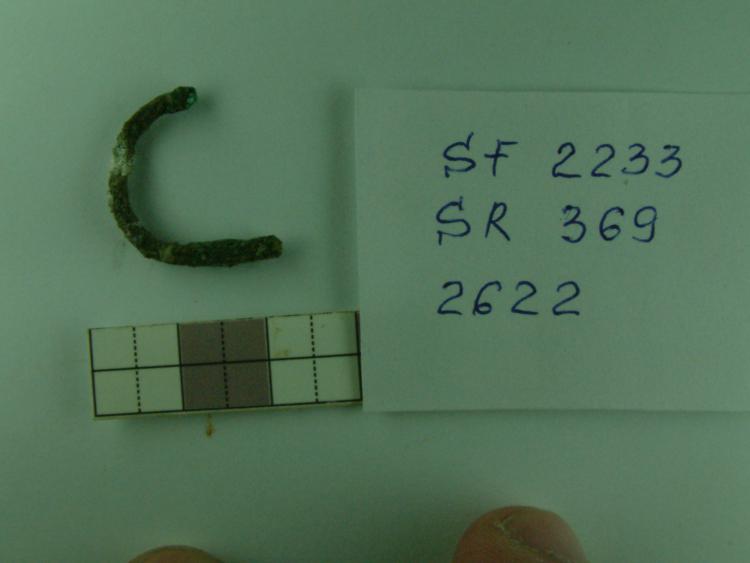 SF 2233
SR 369
2622